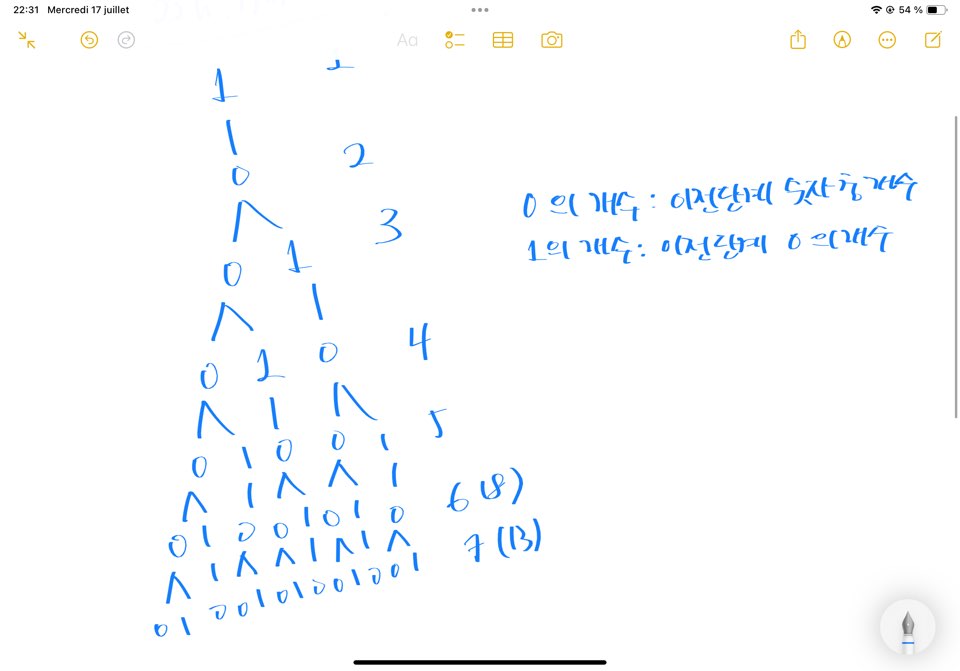 22:31 Mercredi 17 juillet
54 %
Aa
1
2
0
3
0 1
4
0 1 0
5
0 1 0 0 1
6 (8)
0 1 0 0 1 0 1 0
7 (13)
0 1 0 0 1 0 1 0 0 1 0 0 1
0의 개수 : 이전단계 숫자 총개수
1의 개수 : 이전단계 0의개수